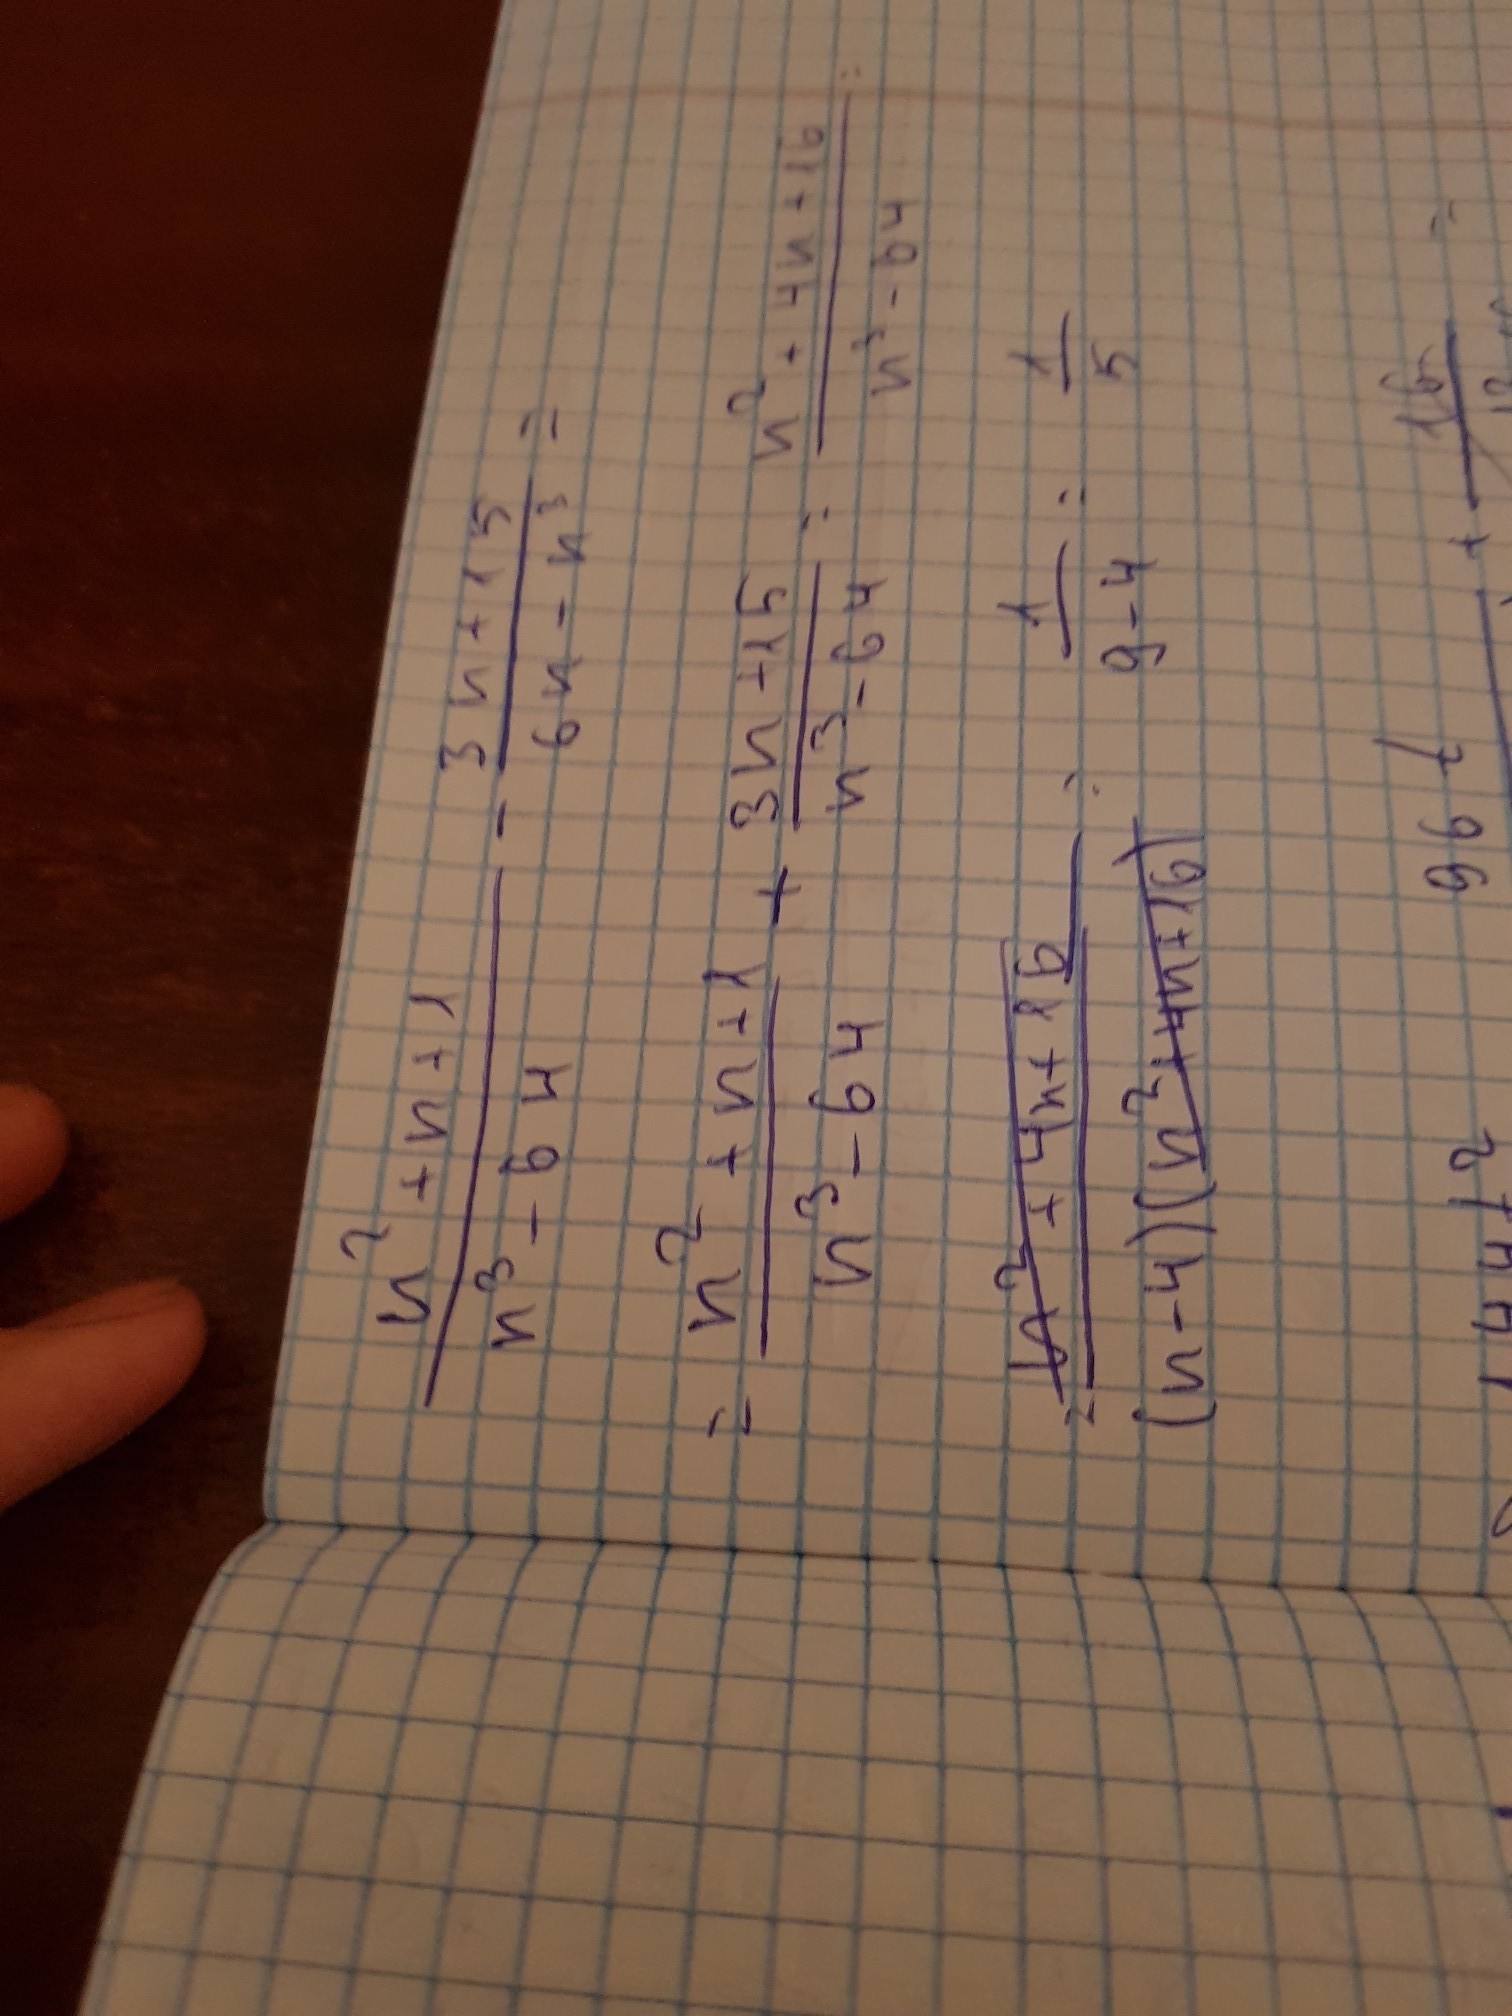 n² + n + 1 / n³ - 64 - 3n + 15 / 6n - n³ =
= n² + n + 1 / n³ - 64 + 3n + 15 / n³ - 64 = n² + 4n + 16 / n³ - 64 =
= n² + 4n + 16 / (n - 4)(n² + 4n + 16) = 1 / 9 - 4 = 1 / 5